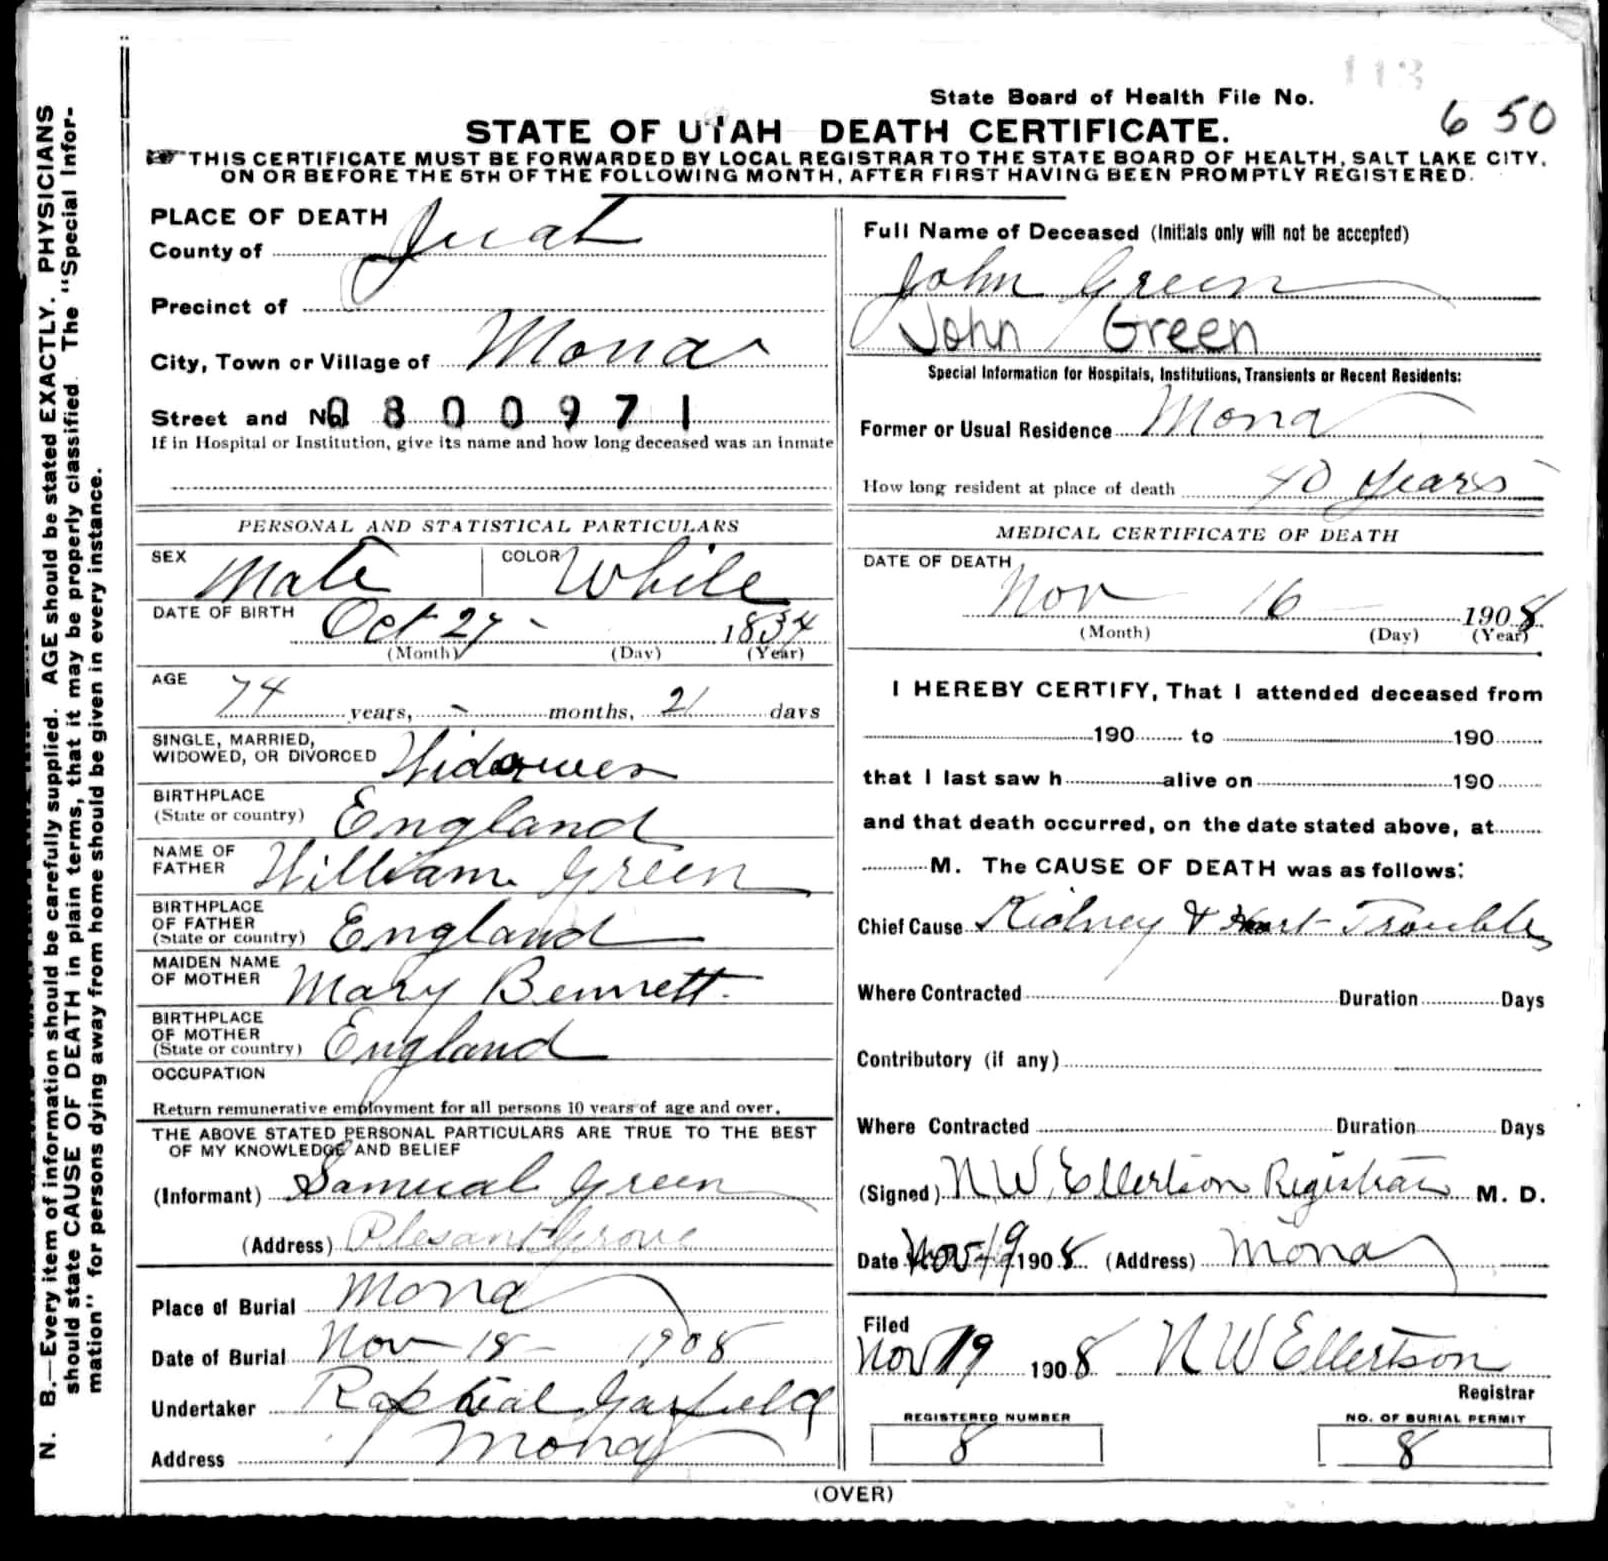 113
State Board of Health File No. 6 50
STATE OF UTAH DEATH CERTIFICATE.
THIS CERTIFICATE MUST BE FORWARDED BY LOCAL REGISTRAR TO THE STATE BOARD OF HEALTH, SALT LAKE CITY,
ON OR BEFORE THE 5TH OF THE FOLLOWING MONTH, AFTER FIRST HAVING BEEN PROMPTLY REGISTERED.
N. B.—Every item of information should be carefully supplied. AGE should be stated EXACTLY. PHYSICIANS
should state CAUSE OF DEATH in plain terms, that it may be properly classified. The "Special Infor-
mation" for persons dying away from home should be given in every instance.
PLACE OF DEATH
County of Juab
Precinct of
City, Town or Village of Mona
Street and No. 0800971
If in Hospital or Institution, give its name and how long deceased was an inmate
PERSONAL AND STATISTICAL PARTICULARS
SEX Male COLOR White
DATE OF BIRTH Oct 27 - 1834
(Month) (Day) (Year)
AGE 74 years, - months, 21 days
SINGLE, MARRIED,
WIDOWED, OR DIVORCED Widower
BIRTHPLACE
(State or country) England
NAME OF
FATHER William Green
BIRTHPLACE
OF FATHER
(State or country) England
MAIDEN NAME
OF MOTHER Mary Bennett
BIRTHPLACE
OF MOTHER
(State or country) England
OCCUPATION
Return remunerative employment for all persons 10 years of age and over.
THE ABOVE STATED PERSONAL PARTICULARS ARE TRUE TO THE BEST
OF MY KNOWLEDGE AND BELIEF
(Informant) Samual Green
(Address) Plesant Grove
Place of Burial Mona
Date of Burial Nov 18 - 1908
Undertaker Raphial Garfield
Address Mona
Full Name of Deceased (Initials only will not be accepted)
John Green
John Green
Special Information for Hospitals, Institutions, Transients or Recent Residents:
Former or Usual Residence Mona
How long resident at place of death 40 years
MEDICAL CERTIFICATE OF DEATH
DATE OF DEATH
Nov 16 1908
(Month) (Day) (Year)
I HEREBY CERTIFY, That I attended deceased from
190 to 190
that I last saw h alive on 190
and that death occurred, on the date stated above, at
M. The CAUSE OF DEATH was as follows:
Chief Cause Kidney & Hart Trouble
Where Contracted Duration Days
Contributory (if any)
Where Contracted Duration Days
(Signed) N W. Ellertson Registrar M. D.
Date Nov 19 1908 (Address) Mona
Filed
Nov 19 1908 N W Ellertson
Registrar
REGISTERED NUMBER
8
NO. OF BURIAL PERMIT
8
(OVER)